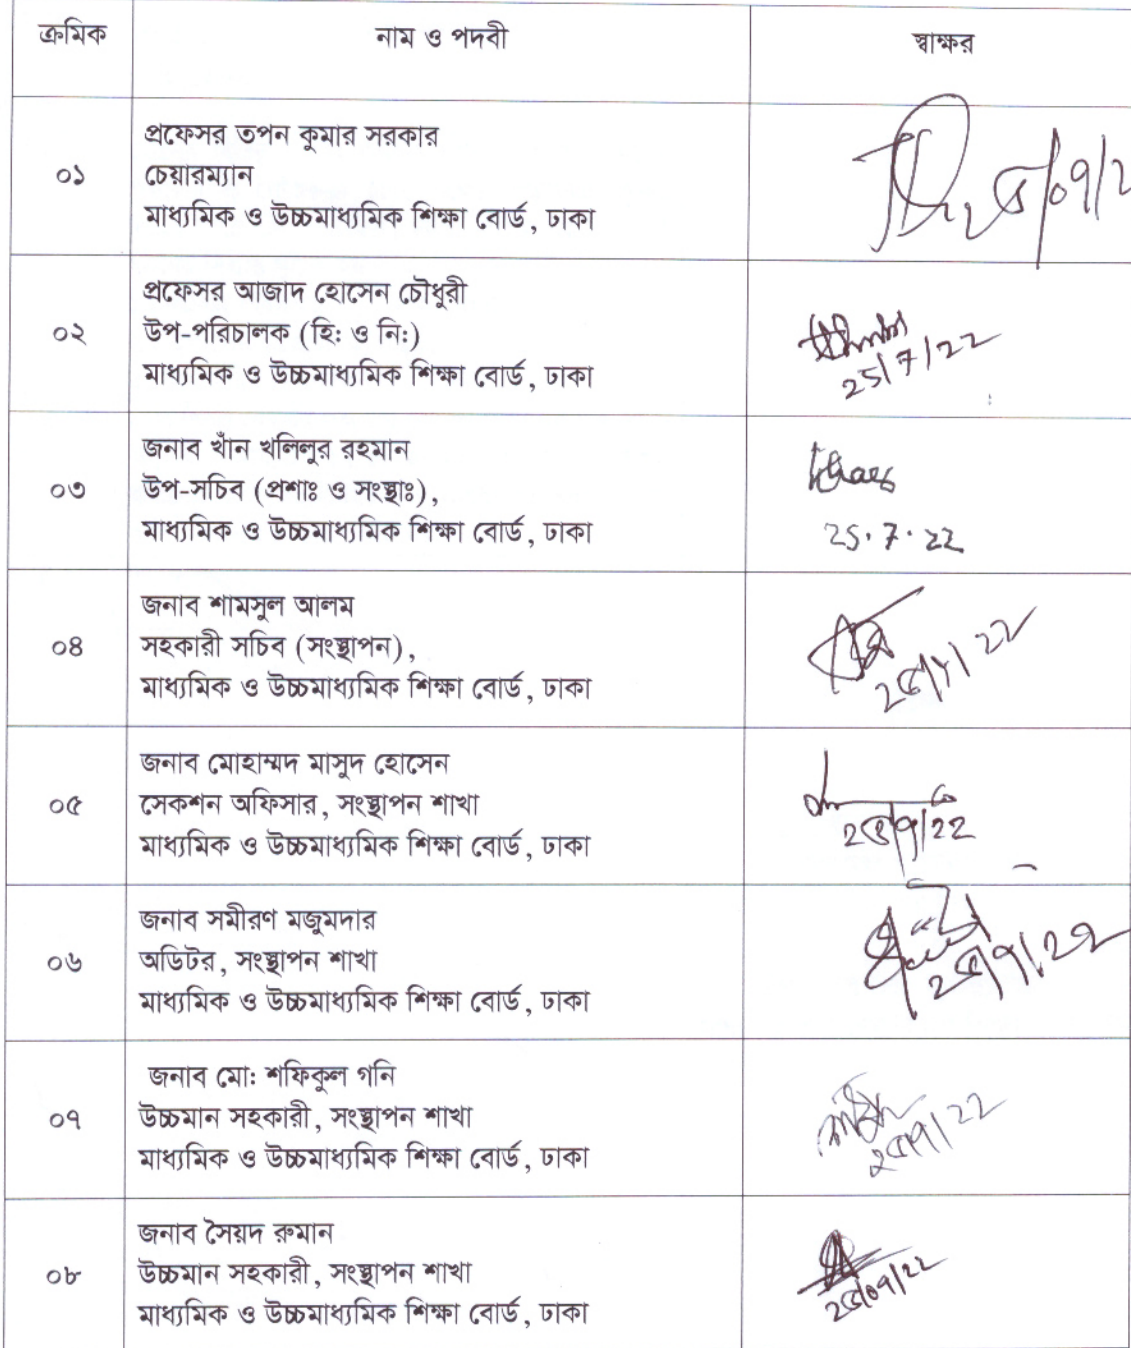 ক্রমিক নাম ও পদবী স্বাক্ষর
প্রফেসর তপন কুমার সরকার
০১ চেয়ারম্যান
মাধ্যমিক ও উচ্চমাধ্যমিক শিক্ষা বোর্ড, ঢাকা
প্রফেসর আজাদ হোসেন চৌধুরী
০২ উপ-পরিচালক (হিঃ ও নিঃ)
মাধ্যমিক ও উচ্চমাধ্যমিক শিক্ষা বোর্ড, ঢাকা
25/7/22
জনাব খাঁন খলিলুর রহমান
০৩ উপ-সচিব (প্রশাঃ ও সংস্থাঃ),
মাধ্যমিক ও উচ্চমাধ্যমিক শিক্ষা বোর্ড, ঢাকা
25.7.22
জনাব শামসুল আলম
০৪ সহকারী সচিব (সংস্থাপন),
মাধ্যমিক ও উচ্চমাধ্যমিক শিক্ষা বোর্ড, ঢাকা
জনাব মোহাম্মদ মাসুদ হোসেন
০৫ সেকশন অফিসার, সংস্থাপন শাখা
মাধ্যমিক ও উচ্চমাধ্যমিক শিক্ষা বোর্ড, ঢাকা
২৫/৭/২২
জনাব সমীরণ মজুমদার
০৬ অডিটর, সংস্থাপন শাখা
মাধ্যমিক ও উচ্চমাধ্যমিক শিক্ষা বোর্ড, ঢাকা
২৫/৭/২২
জনাব মো: শফিকুল গনি
০৭ উচ্চমান সহকারী, সংস্থাপন শাখা
মাধ্যমিক ও উচ্চমাধ্যমিক শিক্ষা বোর্ড, ঢাকা
২৫/৭/২২
জনাব সৈয়দ রুমান
০৮ উচ্চমান সহকারী, সংস্থাপন শাখা
মাধ্যমিক ও উচ্চমাধ্যমিক শিক্ষা বোর্ড, ঢাকা
২৫/০৭/২২